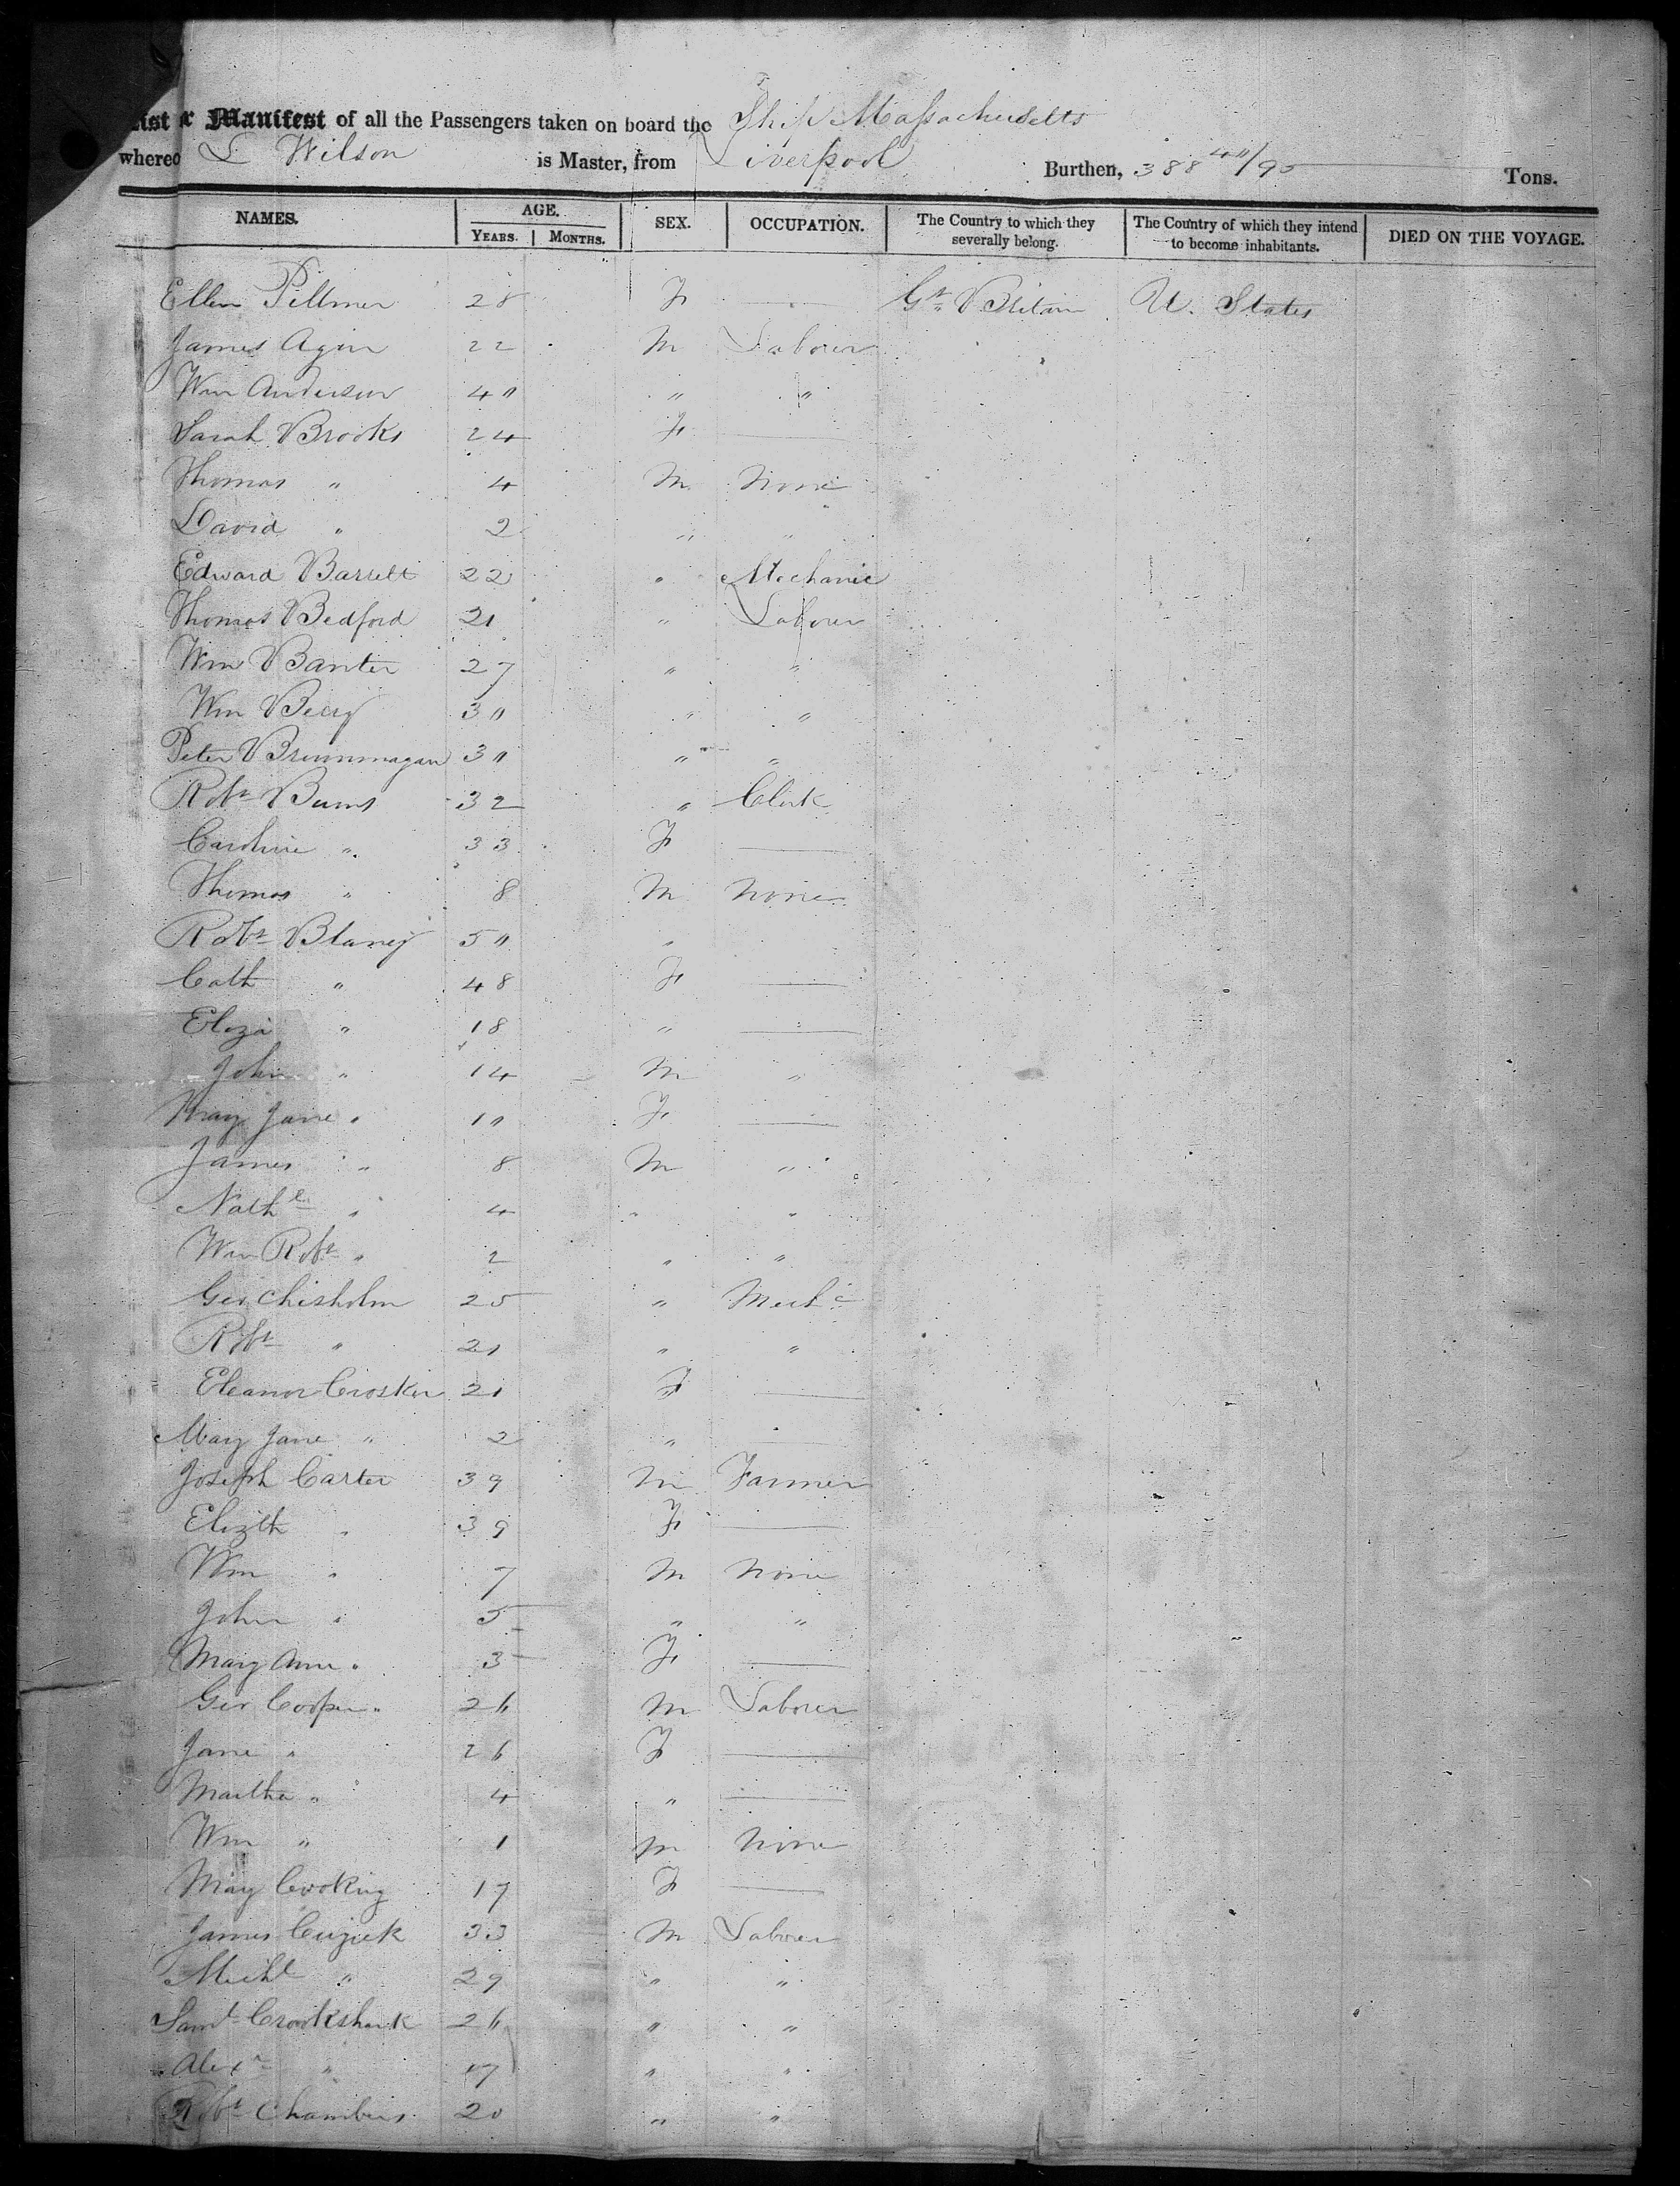 List or Manifest of all the Passengers taken on board the Ship Massachusetts
whereo L Wilson is Master, from Liverpool Burthen, 388 40/95 Tons.
NAMES. AGE. SEX. OCCUPATION. The Country to which they severally belong. The Country of which they intend to become inhabitants. DIED ON THE VOYAGE.
YEARS. MONTHS.
Ellen Pillmer 28 F — Gt. Britain U. States
James Agin 22 M Laborer
Wm Anderson 40 " "
Sarah Brooks 24 F
Thomas " 4 M None
David " 2 " "
Edward Barrett 22 " Mechanic
Thomas Bedford 21 " Laborer
Wm Banter 27 " "
Wm Berry 30 " "
Peter Brummagan 30 " "
Robt Burns 32 " Clerk
Caroline " 33 F —
Thomas " 8 M None
Robt Blaney 50 "
Cath " 48 F —
Eliza " 18 " —
John " 14 M "
Mary Jane " 10 F —
James " 8 M "
Nathl " 4 " "
Wm Robt " 2 " "
Geo Chisholm 25 " Mechc
Robt " 21 " "
Eleanor Crosker 21 F —
Mary Jane " 2 " —
Joseph Carter 39 M Farmer
Elizth " 39 F —
Wm " 7 M None
John " 5 " "
Mary Ann " 3 F —
Geo Cooper " 26 M Laborer
Jane " 26 F —
Martha " 4 " —
Wm " 1 M None
Mary Cooking 17 F —
James Cuzick 33 M Laborer
Michl " 29 " "
Saml Crookshank 26 " "
Alexr " 17 " "
Robt Chambers 20 " "